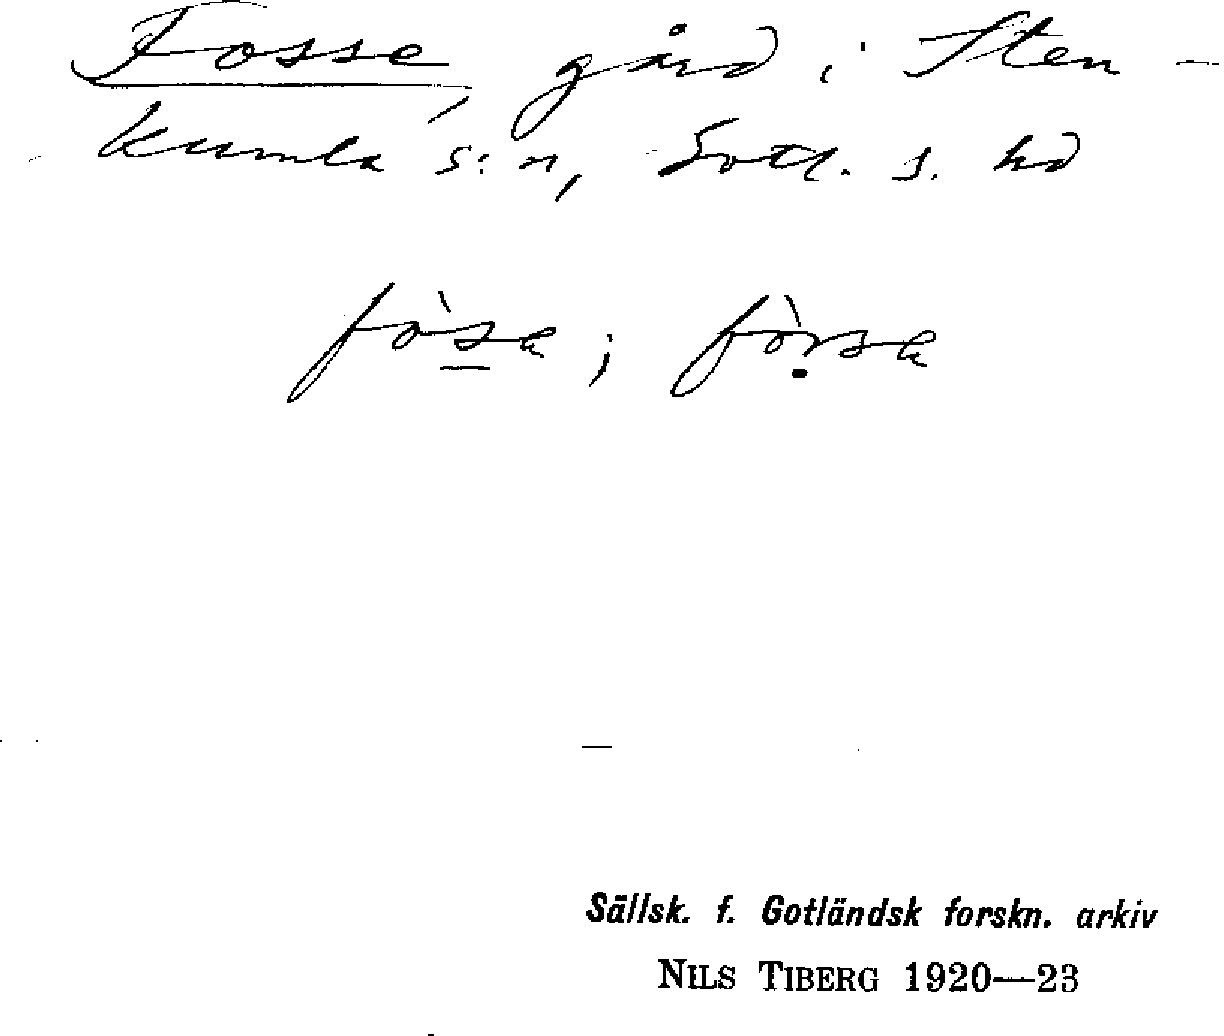 Fosse, gård i Sten-
kumla s:n, Gotl. s. hd
fòsa ; fòrsa
Sällsk. f. Gotländsk forskn. arkiv
NILS TIBERG 1920—23